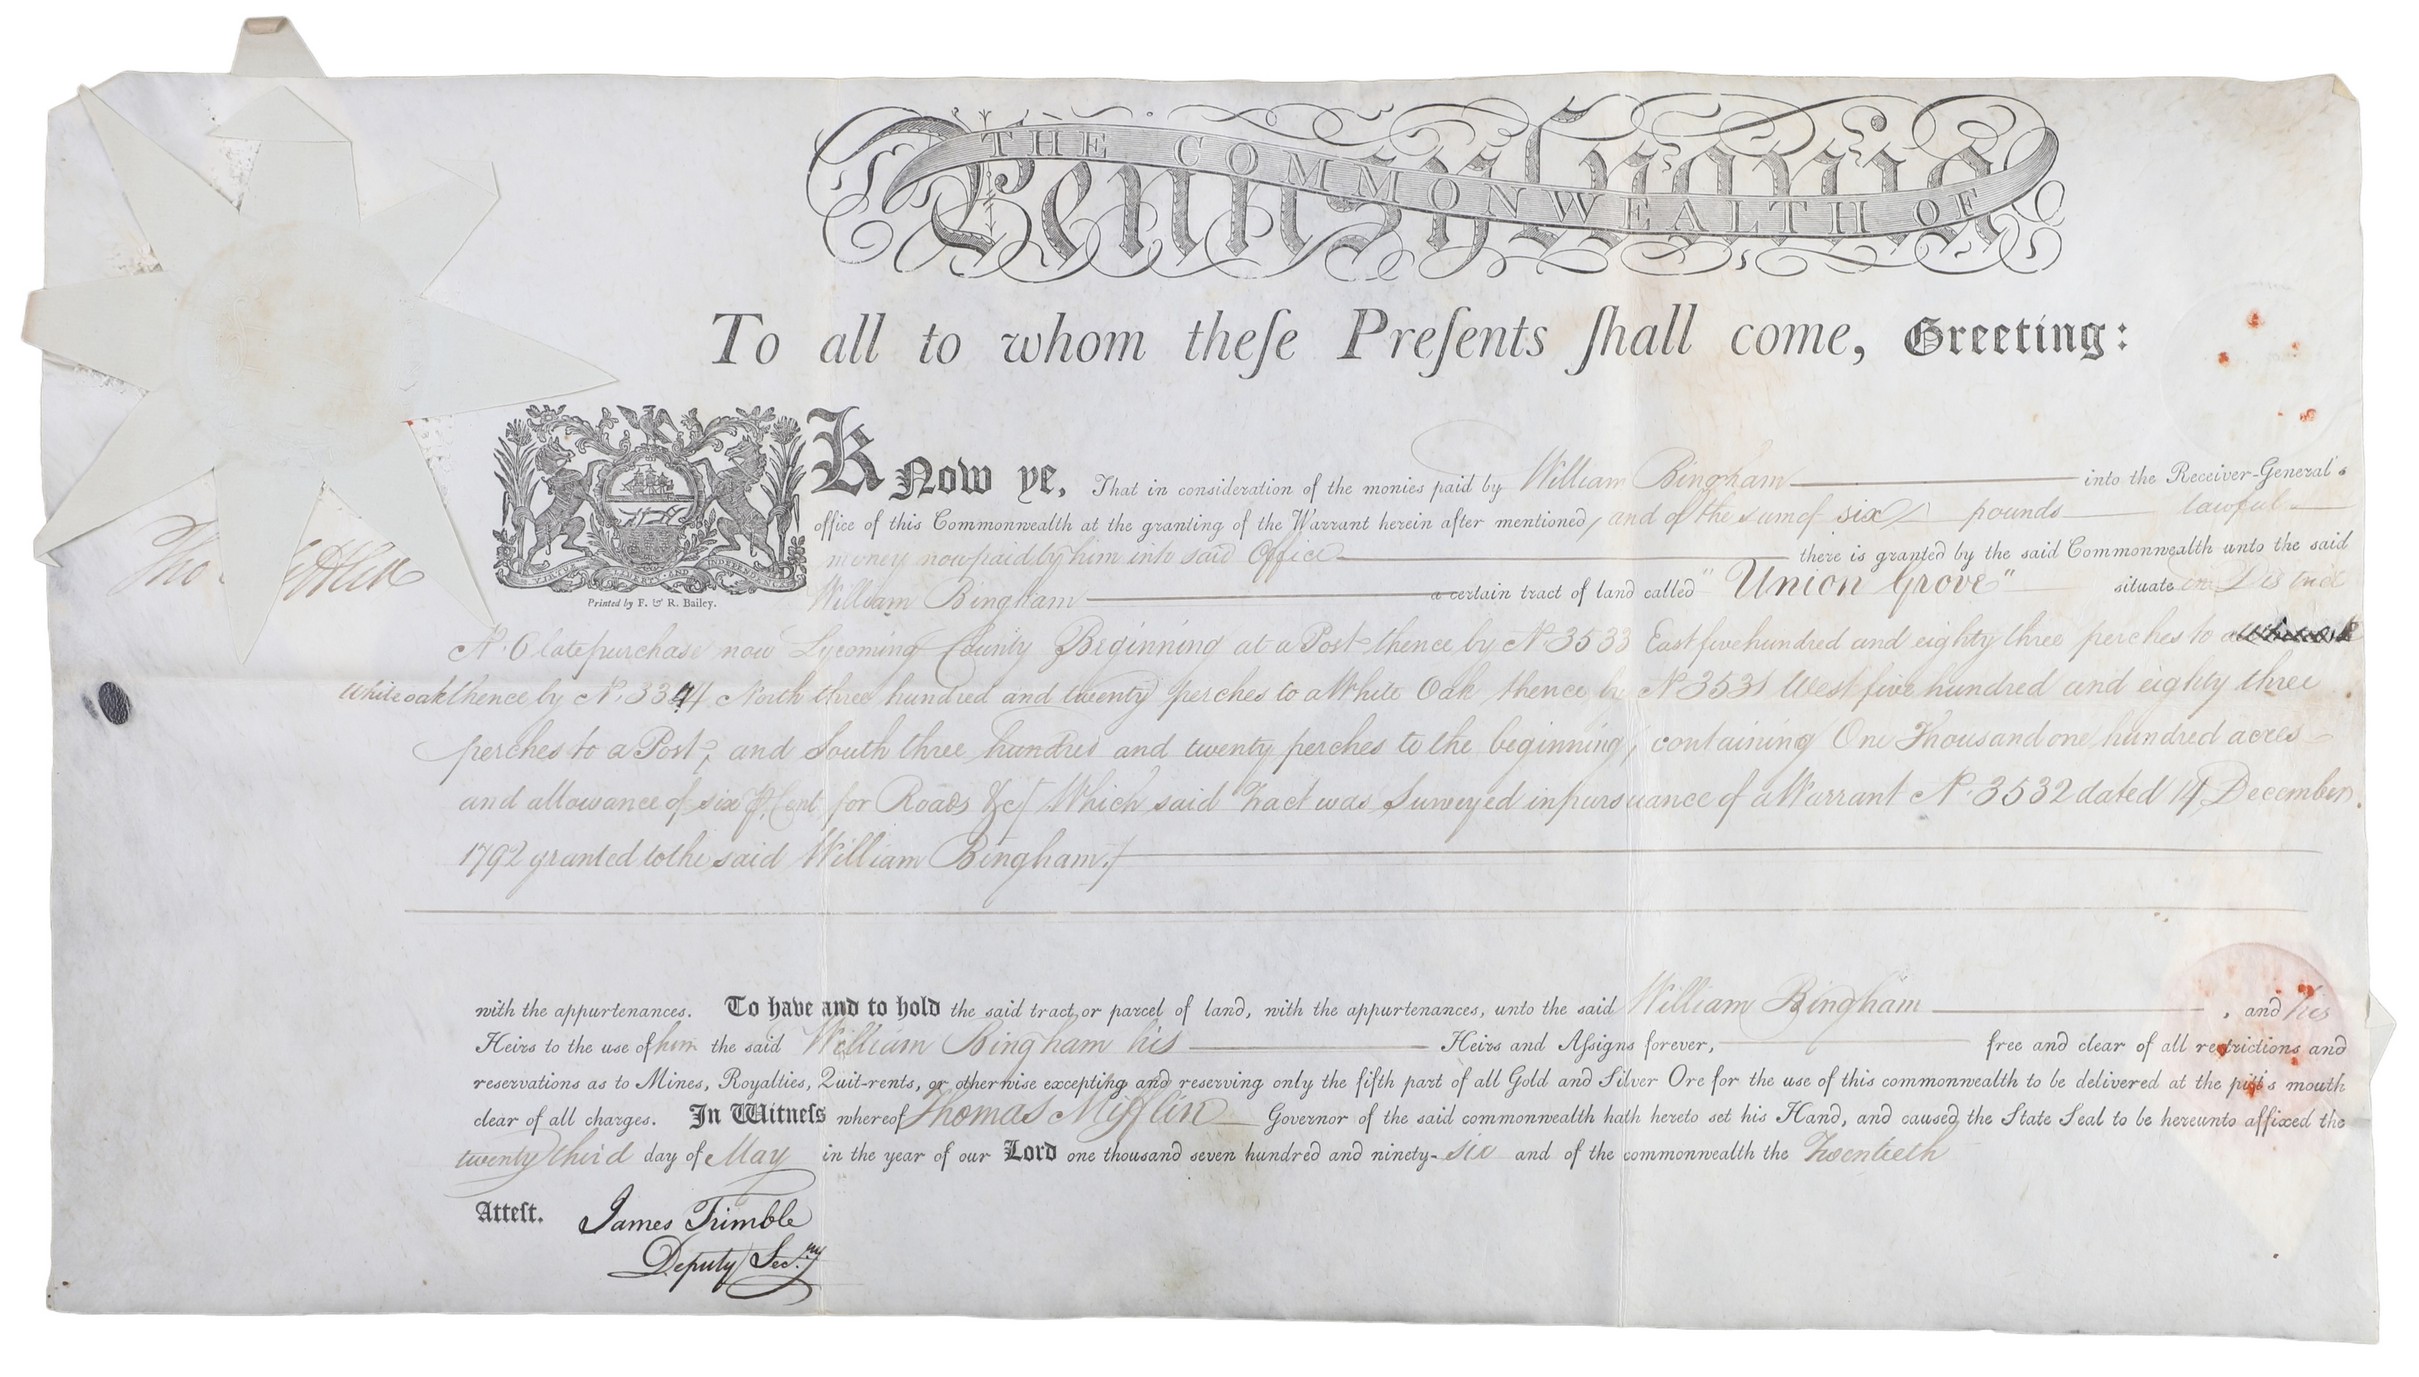 THE COMMONWEALTH OF
Pennsylvania
To all to whom theſe Preſents ſhall come, Greeting:
Know ye, That in consideration of the monies paid by William Bingham into the Receiver-General's
office of this Commonwealth at the granting of the Warrant herein after mentioned, and of the sum of six pounds lawful
money now paid by him into said Office there is granted by the said Commonwealth unto the said
William Bingham a certain tract of land called "Union Grove" situate in District
Nº. 6 late purchase now Lycoming County Beginning at a Post thence by Nº 3533 East five hundred and eighty three perches to a
White oak thence by Nº. North three hundred and twenty perches to a White Oak thence by Nº 3531 West five hundred and eighty three
perches to a Post, and South three hundred and twenty perches to the beginning, containing One Thousand one hundred acres
and allowance of six P. Cent for Roads &c/ Which said Tract was Surveyed in pursuance of a Warrant Nº. 3532 dated 14 December
1792 granted to the said William Bingham/
with the appurtenances. To have and to hold the said tract or parcel of land, with the appurtenances, unto the said William Bingham, and his
Heirs to the use of him the said William Bingham his Heirs and Aſsigns forever, free and clear of all restrictions and
reservations as to Mines, Royalties, Quit-rents, or otherwise excepting and reserving only the fifth part of all Gold and Silver Ore for the use of this commonwealth to be delivered at the pitt's mouth
clear of all charges. In Witneſs whereof Thomas Mifflin Governor of the said commonwealth hath hereto set his Hand, and caused the State Seal to be hereunto affixed the
twenty third day of May in the year of our Lord one thousand seven hundred and ninety-six and of the commonwealth the Twentieth
Atteſt. James Trimble
Deputy Sec.ry
VIRTUE LIBERTY AND INDEPENDENCE
Printed by F. & R. Bailey.
Tho